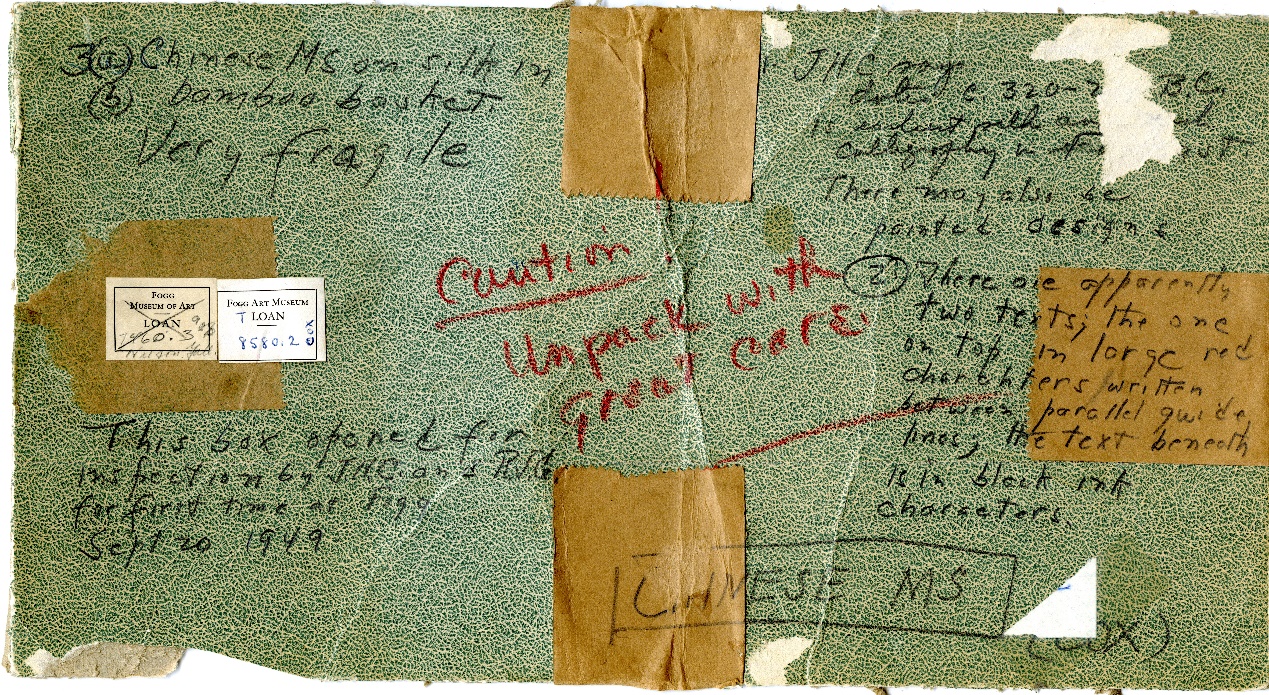 3(a) Chinese MS on silk in
(b) bamboo basket
Very fragile
FOGG
MUSEUM OF ART
LOAN
1960.3
FOGG ART MUSEUM
T LOAN
8580.2
COX
This box opened for
inspection by JHC and
for first time at Fogg
Sept 20 1949
Caution.
Unpack with
great care.
JHC
date c 320-
B.C.
calligraphy
There may also be
painted designs
(2) There are apparently
two texts; the one
on top in large red
characters written
between parallel guide
lines; the text beneath
is in black ink
characters.
CHINESE MS
(COX)